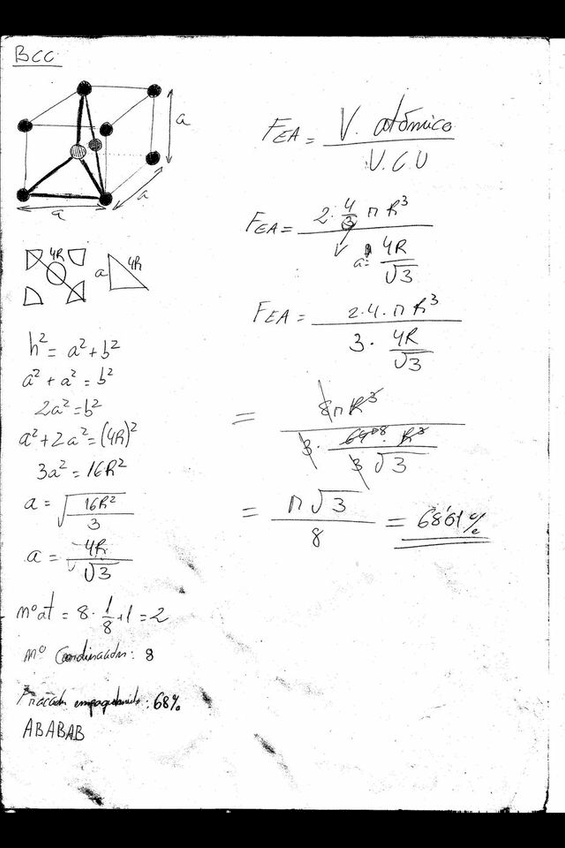 BCC
a
a
a
4R
a
4R
h² = a² + b²
a² + a² = b²
2a² = b²
a² + 2a² = (4R)²
3a² = 16R²
a = √(16R²/3)
a = 4R/√3
nº at = 8 · 1/8 + 1 = 2
nº Coordinación: 8
Fracción empaquetamiento: 68%
ABABAB
FEA = V. atómico / V.C.U
FEA = 2 · 4/3 π R³ / a = 4R/√3
FEA = 2·4·π R³ / 3 · 4R/√3
= 8πR³ / 3 · R³ / 3√3
= π√3 / 8 = 68'01%